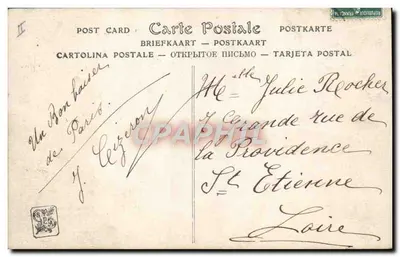 II
POST CARD Carte Postale POSTKARTE
BRIEFKAART — POSTKAART
CARTOLINA POSTALE — ОТКРЫТОЕ ПИСЬМО — TARJETA POSTAL
Un Bon baiser
de Paris
J. Cizeron
Melle Julie Rocher
7 Grande rue de
la Providence
St Etienne
Loire